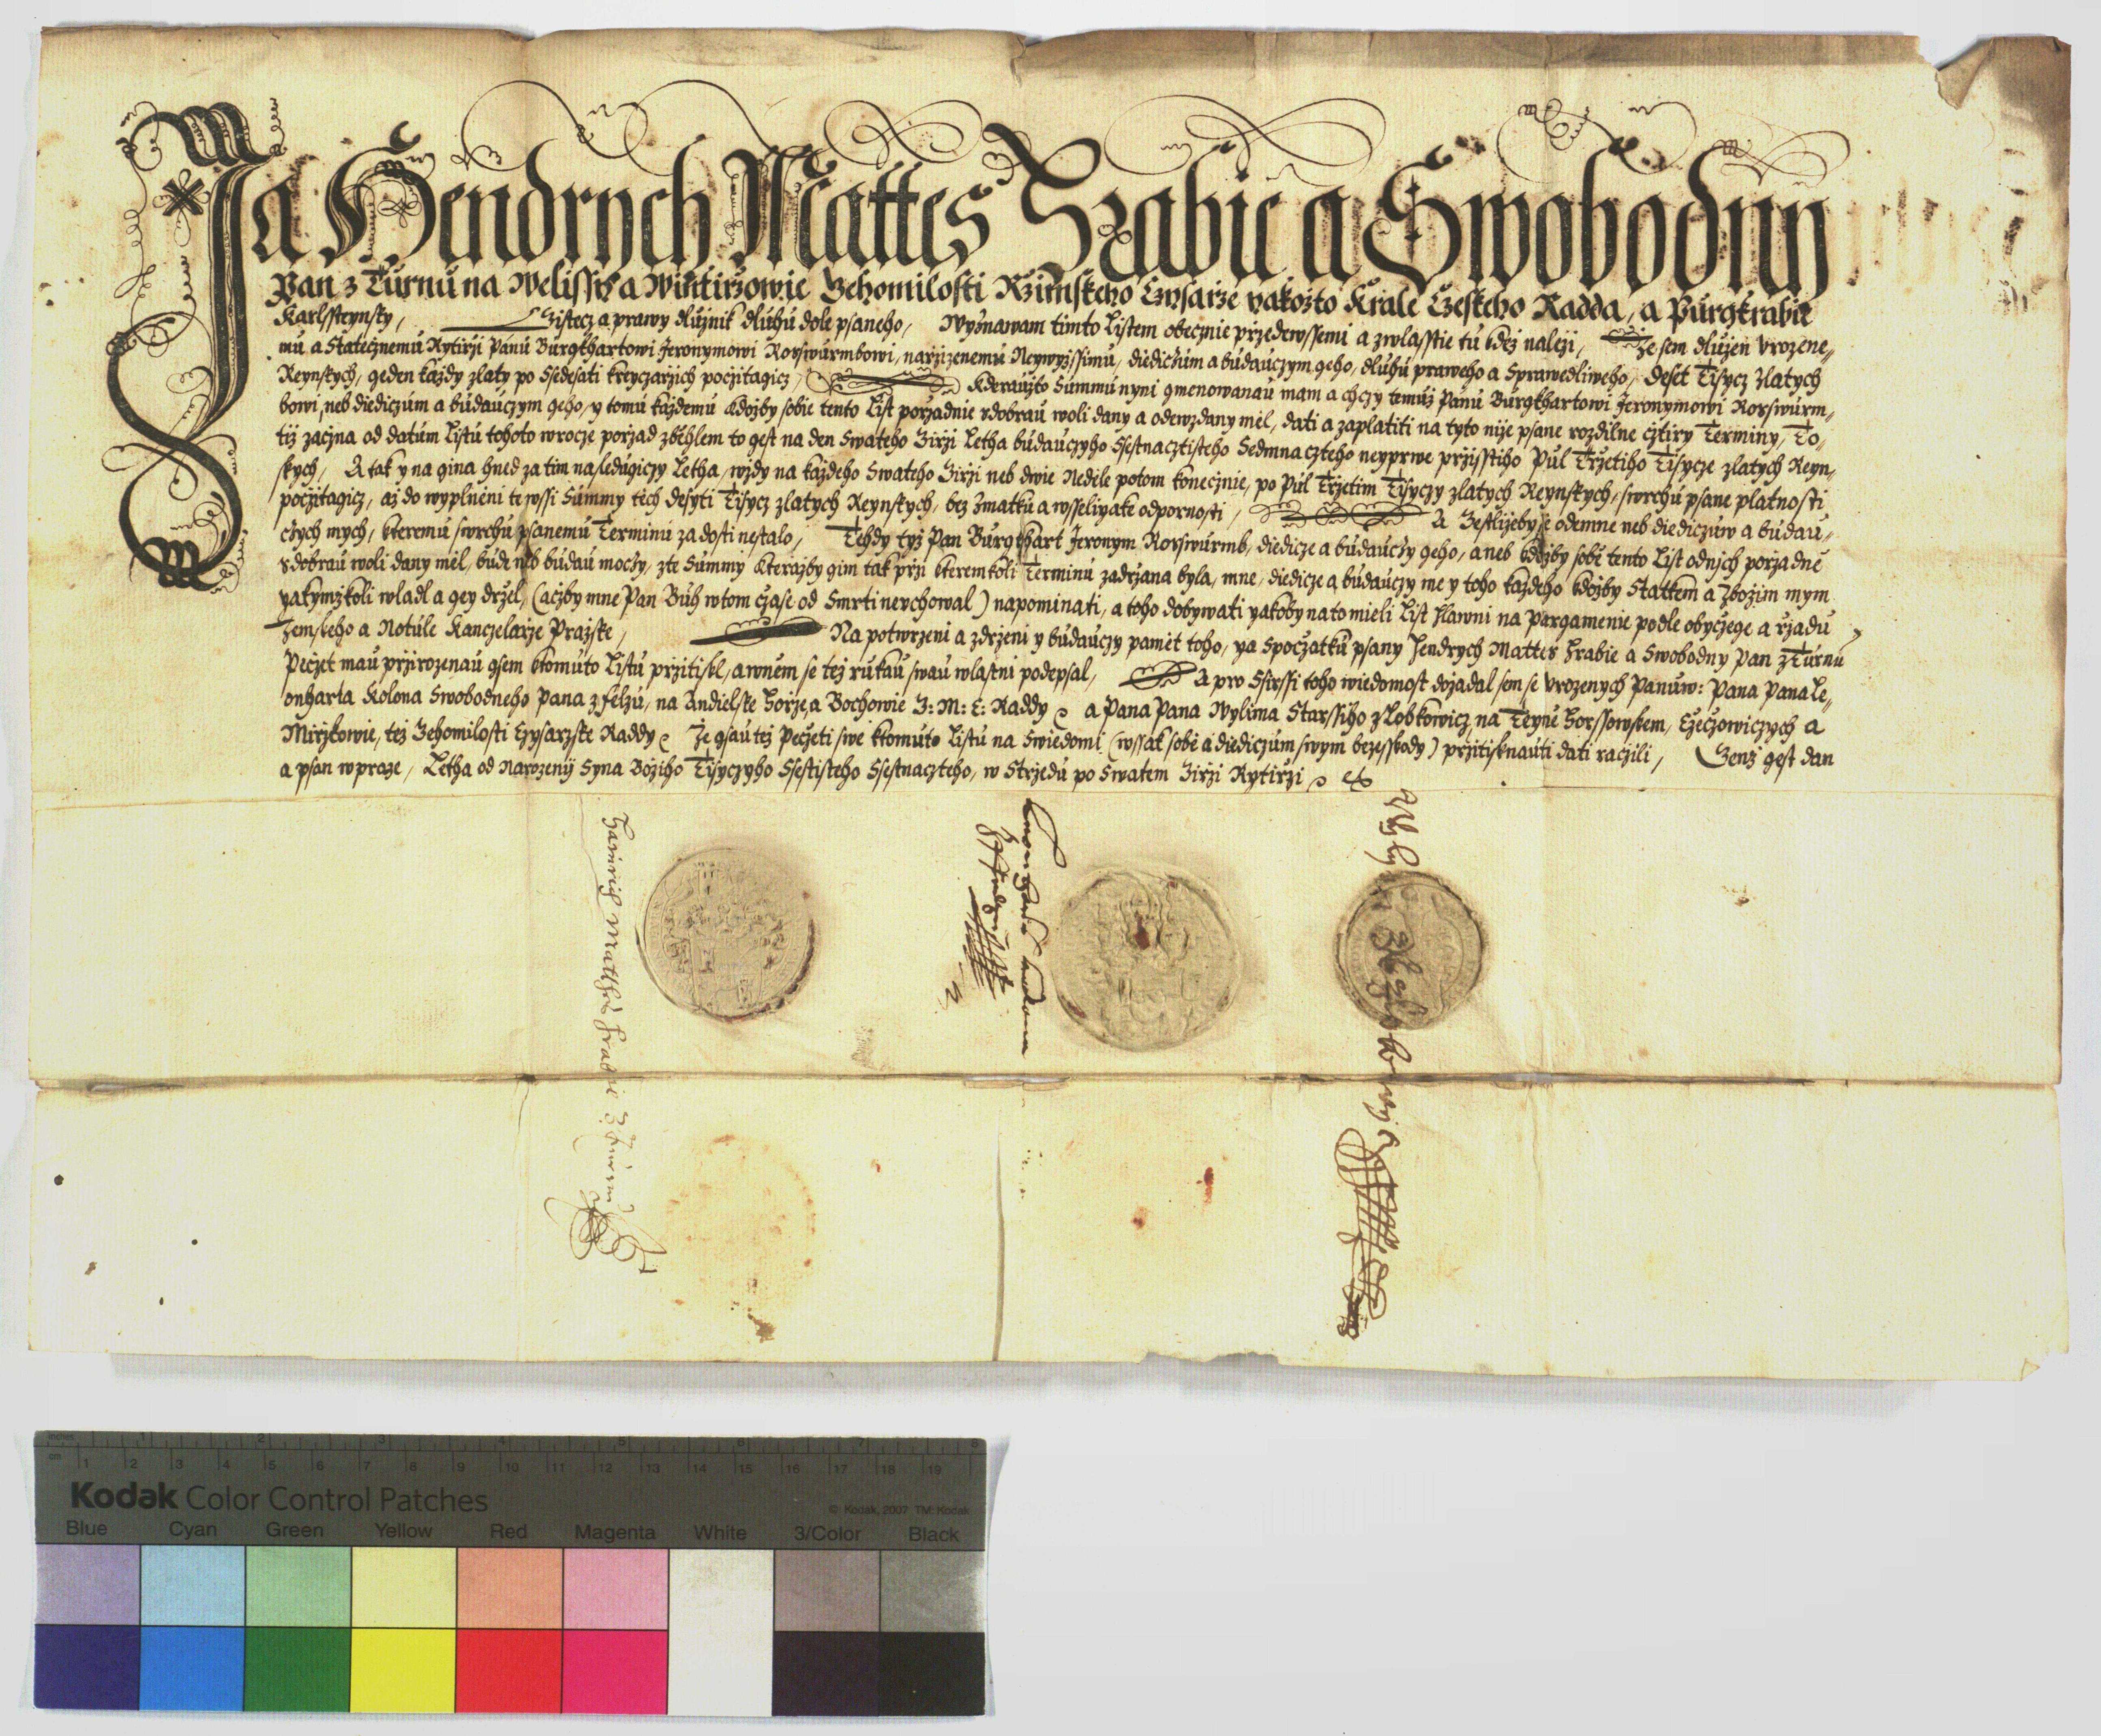 Ja Hendrych Mattes Hrabie a Swobodny
Pan z Turnu na Welissi a Wintirzowie Gehomilosti Rzimskeho Czysarze yakožto Krale Czeskeho Radda, a Purgkrabie
Karlssteynsky, Gistecz a prawy dlužnik dluhu dole psaneho, Wyznawam timto Listem obecznie przedewssemi a zwlasstie tu kdež naleži, Že sem dlužen Vrozene„
mu a Statecznemu Rytirži Panu Burgkhartowi Jeronymowi Rorswurmbowi, narzizenemu Neywyžssimu, diediczum a buduauczym geho, dluhu praweho a Sprawedliweho, Deset Tisycz Zlatych
Reynskych, geden každy zlaty po Ssedesati kreyczarzich pocžitagicz, Kderaužto Summu nyni gmenowanau mam a chczy temuž Panu Burgkhartowi Jeronymowi Rorswurm„
bowi, neb diediczum a budauczym geho, y tomu každemu kdožby sobie tento List porzadnie s dobrau woli dany a odewzdany mel, dati a zaplatiti na tyto niže psane rozdilne cžtiry Terminy, To„
tiž zacžna od datum Listu tohoto wrocze porzad zbiehlem to gest na den Swateho Girži Letha budauczyho Ssestnacztisteho Sedmnacteho neyprwe przisstiho Pul Tržetiho Tisycze zlatych Reyn„
skych, A tak y na gina hned za tim nasledugiczy Letha, wždy na každeho Swateho Girži neb dwie Nedile potom konecžnie, po Pul Tržetim Tisyczy zlatych Reynskych, swrchu psane platnosti
pocžitagicz, až do wyplneni te wssi Summy tiech desyti Tisycz zlatych Reynskych, bez zmatku a wsseliyake odpornosti, A Gestližeby se odemne neb diediczuw a budau„
czych mych, kteremu swrchu psanemu Terminu za dosti nestalo, Tehdy tyž Pan Burgkhart Jeronym Rorswurmb, diedicze a budauczy geho, aneb kdožby sobě tento List odnich porzadně
s dobrau woli dany měl, bude neb budau moczy, zte Summy kteražby gim tak przi kteremkoli Terminu zadržana byla, mne, diedicze a budauczy me y toho každeho kdožby Statkem a zbožim mym
yakymžkoli wladl a gey držel, (acžby mne Pan Buh wtom cžase od Smrti neuchowal) napominati, a toho dobywati yakoby na to mieli List Hlawni na Pargamenie podle obycžege a ržadu
Zemskeho a Notule Kanczelarže Pražske, Na potwrzeni a zdrženi y budauczy pamět toho, ya Spocžatku psany Hendrych Mattes Hrabie a Swobodny Pan z Turnu
Pečžet mau przirozenau gsem ktomuto Listu przitiskl, a wněm se tež rukau swau wlastni podepsal, A pro Ssirssi toho wiedomost dožadal sem se Vrozenych Panuw: Pana Pana Le„
onharta Kolona Swobodneho Pana z Felzu, na Andielske Horže, a Bochowie G: M: C: Raddy a Pana Pana Wylima Starssiho z Lobkowicz, na Teynu Horssowskem, Cžecžowiczych a
Miržkowie, tež Gehomilosti Czysarzske Raddy Že gsau tež Pečžeti swe ktomuto Listu na Swiedomi (wssak sobě a diediczum swym bezesskody) przitisknauti dati raczili, Genž gest dan
a psan w praze, Letha od Narozeny Syna Božiho Tisyczyho Ssestisteho Ssestnaczteho, w Strzedu po Swatem Girži Rytirži
Heinrich Matthes Hrabie z Turnu
Leonhardt
Wylym z Lobkowicz
inches 1 2 3 4 5 6 7 8
cm 1 2 3 4 5 6 7 8 9 10 11 12 13 14 15 16 17 18 19
Kodak Color Control Patches
© Kodak, 2007 TM: Kodak
Blue Cyan Green Yellow Red Magenta White 3/Color Black